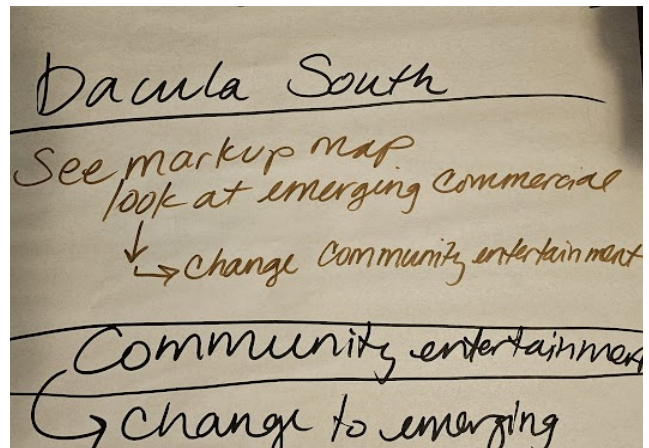 Dacula South
See markup map
look at emerging commercial
change community entertainment
Community entertainmen
change to emerging